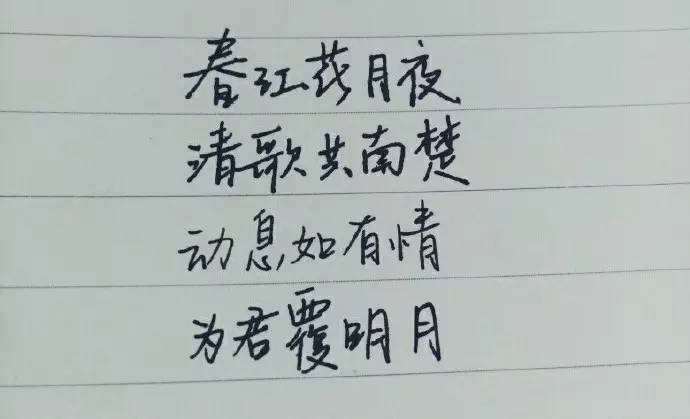 春江花月夜
清歌共南楚
动息如有情
为君覆明月